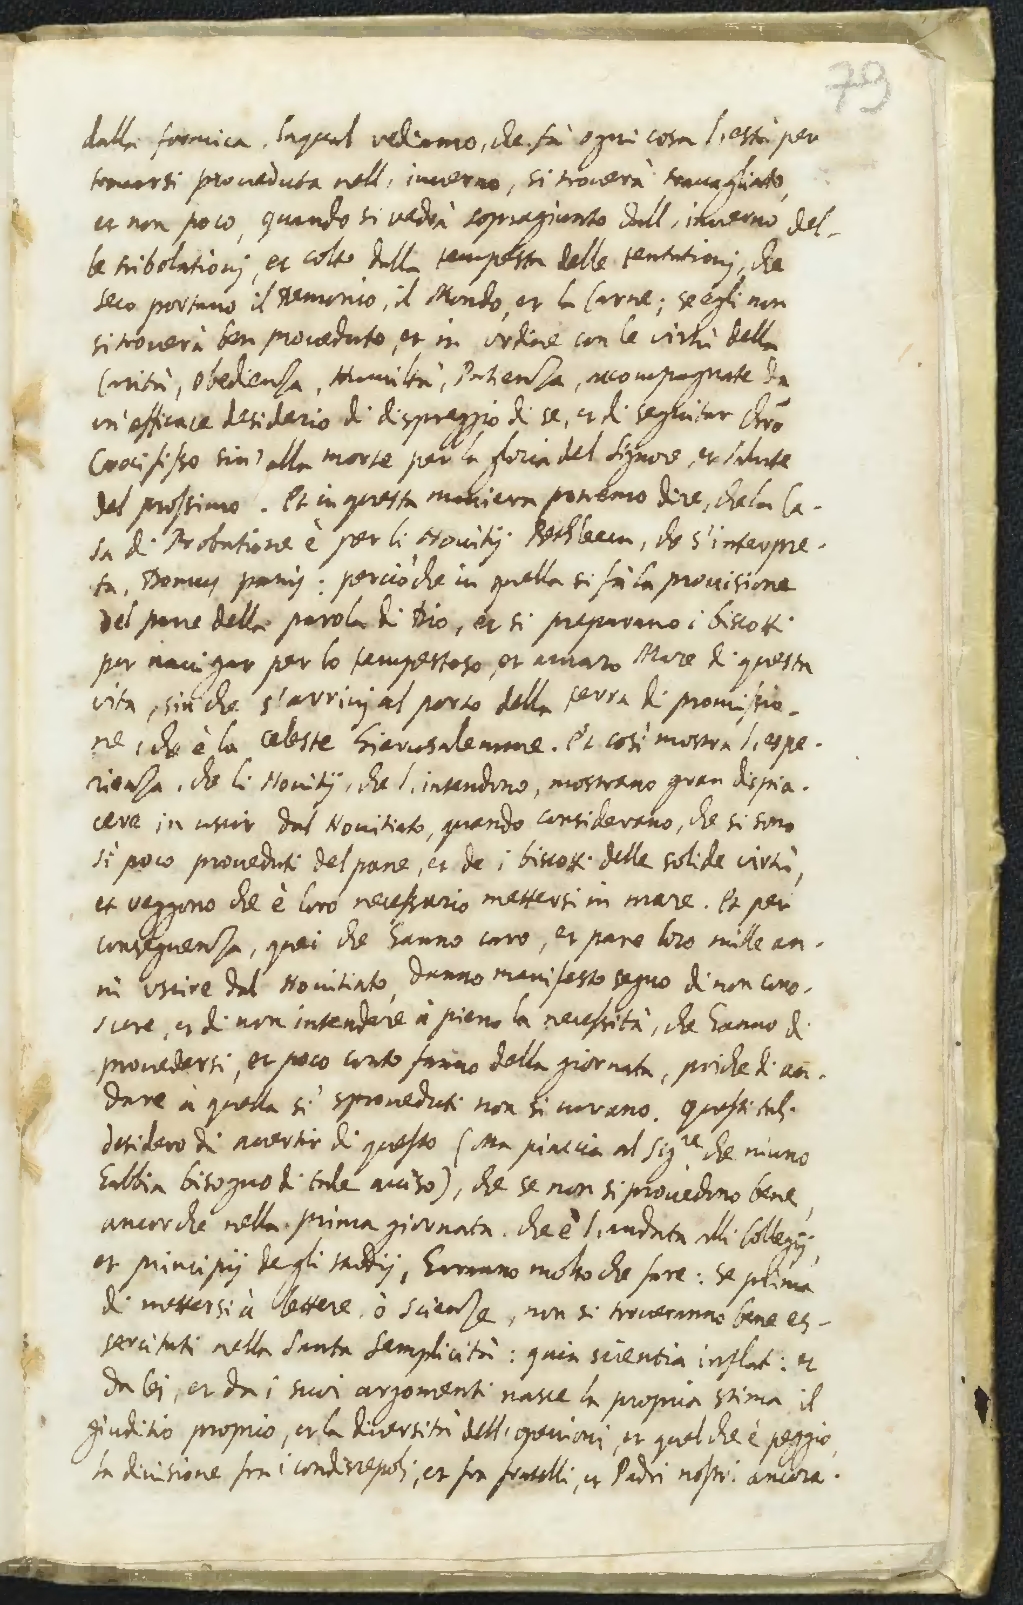 79
dalla formica, laqual vediamo, che fà ogni cosa l'està per
trouarsi proueduta nell'inuerno, si trouerà trauagliato,
et non poco, quando si vedrà sopragiunto dall'inuerno del-
le tribolationj, et colto dalla tempesta delle tentationj, che
seco portano il Demonio, il Mondo, et la Carne; se egli non
si trouerà ben proueduto, et in ordine con le virtù della
Carità, Obedienza, Humiltà, Patienza, accompagnate da
un'efficace desiderio di dispreggio di se, et di seguitar Chrõ
Crocifisso sin'alla morte per la gloria del Signore, et salute
del prossimo. Et in questa maniera potremo dire, che la Ca-
sa di Probatione è per li Nouitij Bethleem, che s'interpre-
ta, Domus panis: perciòche in quella si fà la prouisione
del pane della parola di Dio, et si preparano i biscotti
per nauigar per lo tempestoso, et amaro Mare di questa
vita, sin che s'arriuj al porto della terra di promissio-
ne, che è la celeste Gierusalemme. Et così mostra l'espe-
rienza, che li Nouitij, che l'intendono, mostrano gran dispia-
cere in uscir dal Nouitiato, quando considerano, che si sono
sì poco proueduti del pane, et de i biscotti delle solide virtù,
et veggono che è loro necessario mettersi in mare. Et per
conseguenza, quei che hanno caro, et pare loro mille an-
ni vscire dal Nouitiato, danno manifesto segno di non cono-
scere, et di non intendere à pieno la necessità, che hanno di
prouedersi, et poco conto fanno della giornata, poiche di an-
dare à quella sì sproueduti non si curano. Questi tali
desidero di auertir di questo (Ma piaccia al Sig.re che niuno
habbia bisogno di tale auiso), che se non si prouedono bene,
ancorche nella prima giornata, che è l'andata alli Collegij,
et principij degli studij, haranno molto che fare: se prima
di mettersi à lettere, ò scienze, non si troueranno bene es-
sercitati nella Santa Semplicità: quia scientia inflat: et
da lei, et da i suoi argomenti nasce la propria stima il
giuditio proprio, et la diuersità dell'openioni, et quel che è peggio,
la diuisione fra i condiscepoli, et fra fratelli, et Padri nostri ancora.